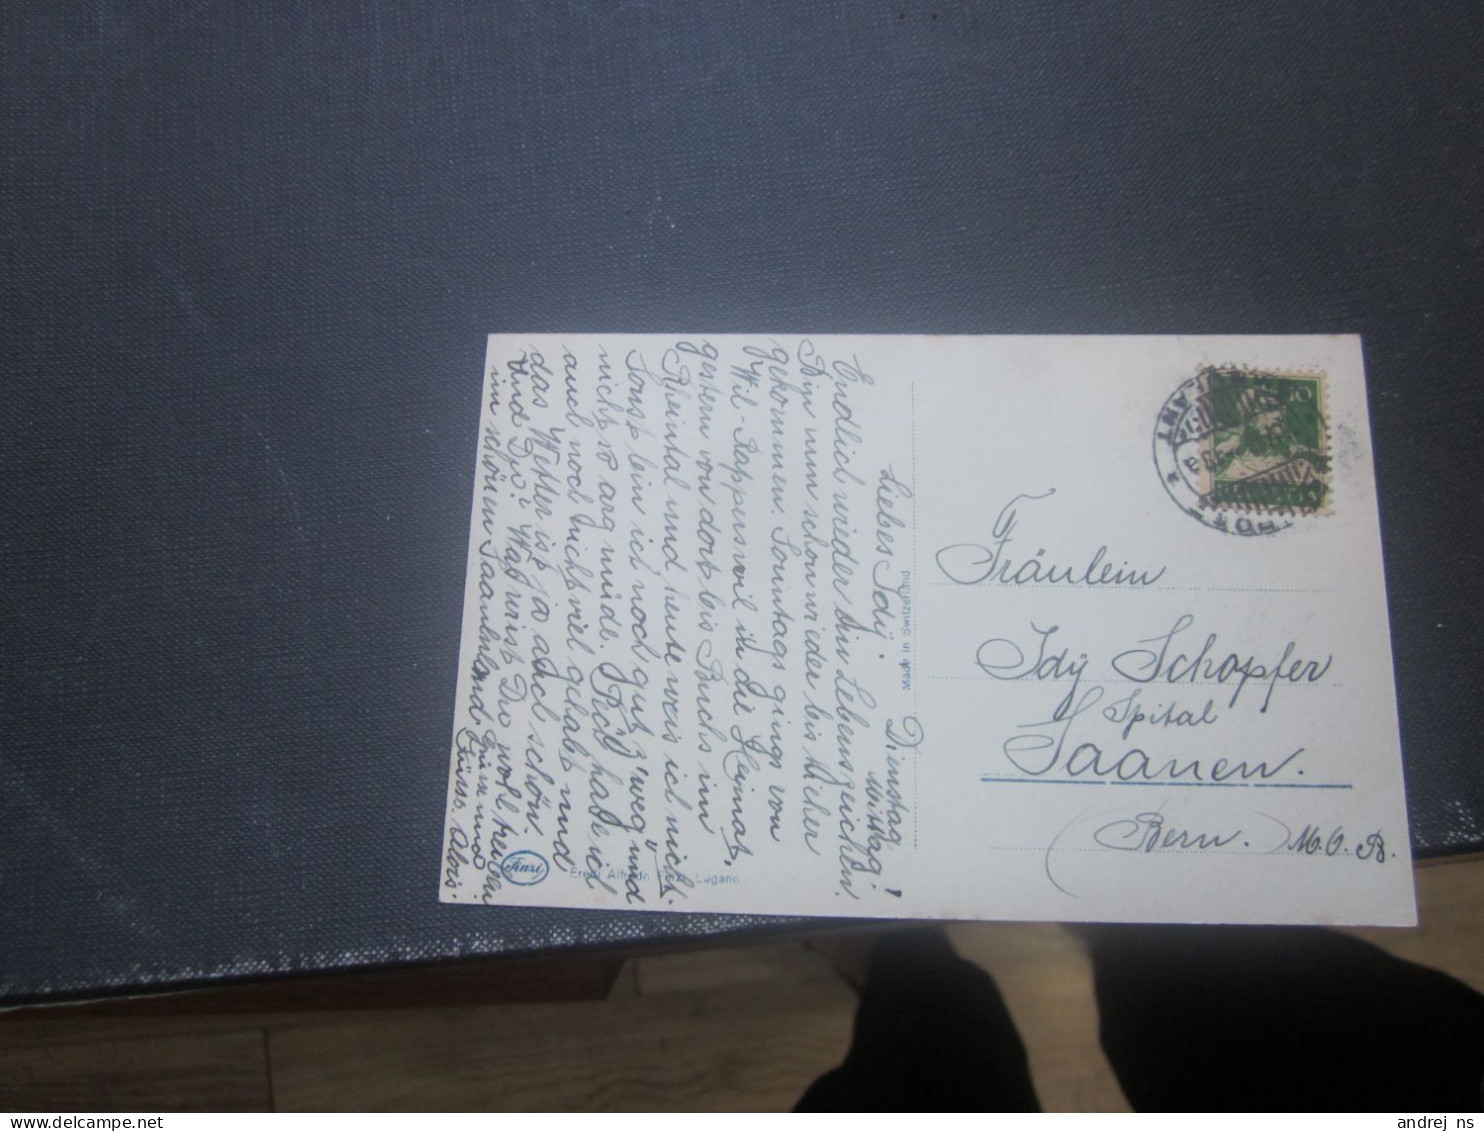 Dienstag
Mittag!
Liebes Idÿ.
Endlich wieder ein Lebenszeichen.
Bin nun schon wieder bis hieher
gekommen. Sonntags gings von
Wil-Rapperswil in die Heimat,
gestern von dort bis Buchs im
Rheintal und heute weis ich nicht.
Sonst bin ich noch gut z'weg" und
nicht so arg müde. Pech habe ich
auch noch nicht viel gehabt und
das Wetter ist ja auch schön.
Und Du? Was wirst Du wohl treiben
im schönen Saanenland. Grüsse und
Küsse. Alois.
Made in Switzerland
Finzi
Eredi Alfredo Finzi Lugano
10
Fräulein
Idÿ Schopfer
Spital
Saanen.
(Bern.) M.O.B.
andrej_ns